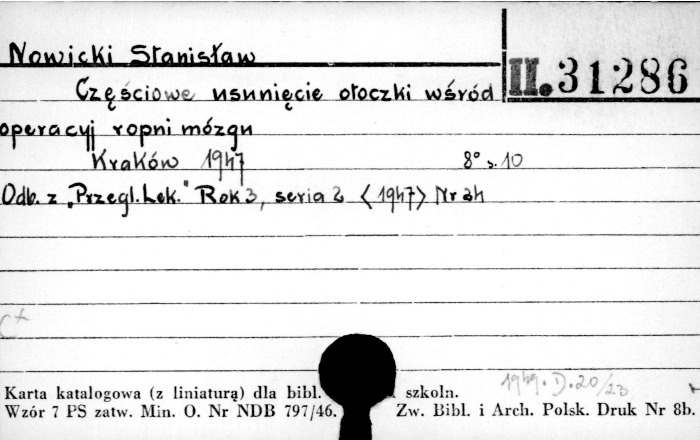 Nowicki Stanisław
II. 31286
Częściowe usunięcie otoczki wśród
operacyj ropni mózgu
Kraków 1947 8° s. 10
Odb. z „Przegl. Lek." Rok 3, seria 2 <1947> Nr 24
Karta katalogowa (z liniaturą) dla bibl. szkoln.
1949. D. 20/23
Wzór 7 PS zatw. Min. O. Nr NDB 797/46. Zw. Bibl. i Arch. Polsk. Druk Nr 8b.